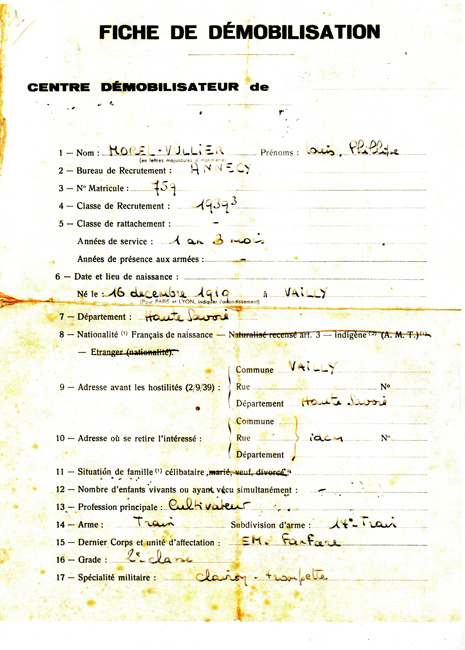 FICHE DE DÉMOBILISATION
CENTRE DÉMOBILISATEUR de
1 — Nom : MOREL-VULLIER Prénoms : Louis, Philippe
(en lettres majuscules d'imprimerie)
2 — Bureau de Recrutement : ANNECY
3 — N° Matricule : 759
4 — Classe de Recrutement : 1939³
5 — Classe de rattachement : -
Années de service : 1 an 3 mois
Années de présence aux armées : -
6 — Date et lieu de naissance :
Né le : 16 décembre 1919 à VAILLY
(Pour PARIS et LYON, indiquer l'arrondissement)
7 — Département : Haute Savoie
8 — Nationalité (1) Français de naissance — Naturalisé recensé art. 3 — indigène (2) (A. M. T.) (1)
— Etranger (nationalité).
Commune VAILLY
9 — Adresse avant les hostilités (2/9/39) : Rue N°
Département Haute Savoie
Commune
10 — Adresse où se retire l'intéressé : Rue idem N°
Département
11 — Situation de famille (1) célibataire, marié, veuf, divorcé
12 — Nombre d'enfants vivants ou ayant vécu simultanément : -
13 — Profession principale : Cultivateur
14 — Arme : Train Subdivision d'arme : 14e Train
15 — Dernier Corps et unité d'affectation : EM. Fanfare
16 — Grade : 2e classe
17 — Spécialité militaire : clairon - trompette